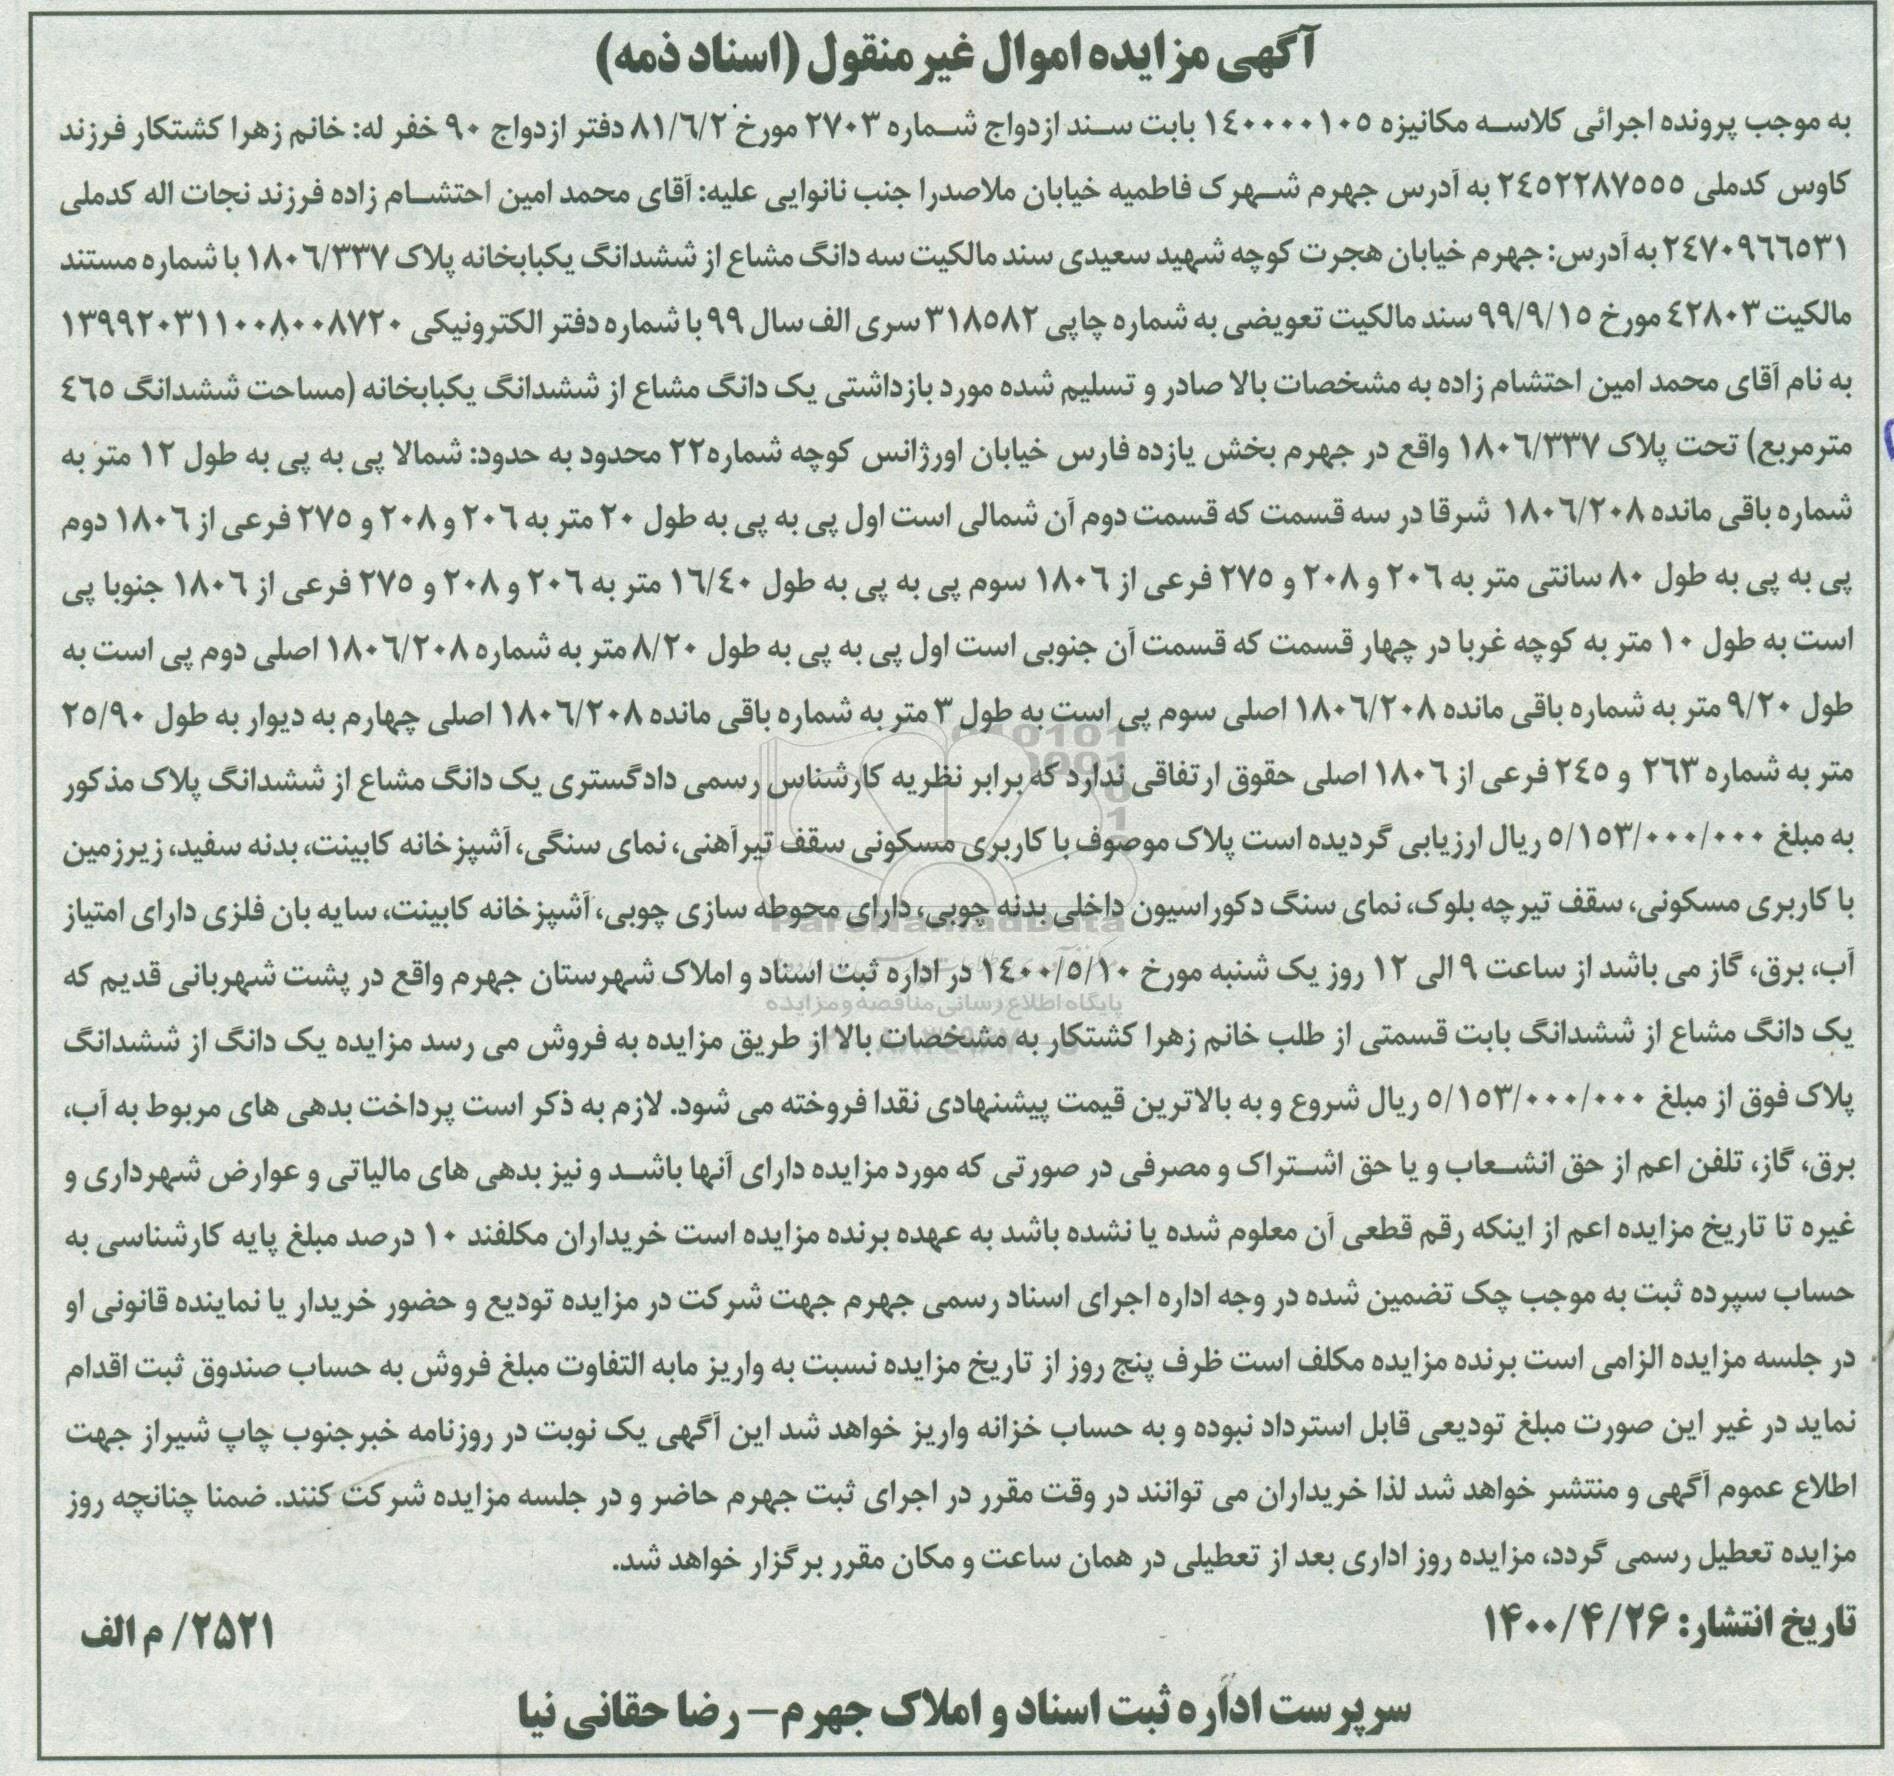 آگهی مزایده اموال غیر منقول (اسناد ذمه)
به موجب پرونده اجرائی کلاسه مکانیزه ۱۴۰۰۰۰۱۰۵ بابت سند ازدواج شماره ۲۷۰۳ مورخ ۸۱/۶/۲ دفتر ازدواج ۹۰ خفر له: خانم زهرا کشتکار فرزند
کاوس کدملی ۲۴۵۲۲۸۷۵۵۵ به آدرس جهرم شهرک فاطمیه خیابان ملاصدرا جنب نانوایی علیه: آقای محمد امین احتشام زاده فرزند نجات اله کدملی
۲۴۷۰۹۶۶۵۳۱ به آدرس: جهرم خیابان هجرت کوچه شهید سعیدی سند مالکیت سه دانگ مشاع از ششدانگ یکبابخانه پلاک ۱۸۰۶/۳۳۷ با شماره مستند
مالکیت ۴۲۸۰۳ مورخ ۹۹/۹/۱۵ سند مالکیت تعویضی به شماره چاپی ۳۱۸۵۸۲ سری الف سال ۹۹ با شماره دفتر الکترونیکی ۱۳۹۹۲۰۳۱۱۰۰۸۰۰۸۷۲۰
به نام آقای محمد امین احتشام زاده به مشخصات بالا صادر و تسلیم شده مورد بازداشتی یک دانگ مشاع از ششدانگ یکبابخانه (مساحت ششدانگ ۴۶۵
مترمربع) تحت پلاک ۱۸۰۶/۳۳۷ واقع در جهرم بخش یازده فارس خیابان اورژانس کوچه شماره۲۲ محدود به حدود: شمالا پی به پی به طول ۱۲ متر به
شماره باقی مانده ۱۸۰۶/۲۰۸ شرقا در سه قسمت که قسمت دوم آن شمالی است اول پی به پی به طول ۲۰ متر به ۲۰۶ و ۲۰۸ و ۲۷۵ فرعی از ۱۸۰۶ دوم
پی به پی به طول ۸۰ سانتی متر به ۲۰۶ و ۲۰۸ و ۲۷۵ فرعی از ۱۸۰۶ سوم پی به پی به طول ۱۶/۴۰ متر به ۲۰۶ و ۲۰۸ و ۲۷۵ فرعی از ۱۸۰۶ جنوبا پی
است به طول ۱۰ متر به کوچه غربا در چهار قسمت که قسمت آن جنوبی است اول پی به پی به طول ۸/۲۰ متر به شماره ۱۸۰۶/۲۰۸ اصلی دوم پی است به
طول ۹/۲۰ متر به شماره باقی مانده ۱۸۰۶/۲۰۸ اصلی سوم پی است به طول ۳ متر به شماره باقی مانده ۱۸۰۶/۲۰۸ اصلی چهارم به دیوار به طول ۲۵/۹۰
متر به شماره ۲۶۳ و ۲۴۵ فرعی از ۱۸۰۶ اصلی حقوق ارتفاقی ندارد که برابر نظریه کارشناس رسمی دادگستری یک دانگ مشاع از ششدانگ پلاک مذکور
به مبلغ ۵/۱۵۳/۰۰۰/۰۰۰ ریال ارزیابی گردیده است پلاک موصوف با کاربری مسکونی سقف تیرآهنی، نمای سنگی، آشپزخانه کابینت، بدنه سفید، زیرزمین
با کاربری مسکونی، سقف تیرچه بلوک، نمای سنگ دکوراسیون داخلی بدنه چوبی، دارای محوطه سازی چوبی، آشپزخانه کابینت، سایه بان فلزی دارای امتیاز
آب، برق، گاز می باشد از ساعت ۹ الی ۱۲ روز یک شنبه مورخ ۱۴۰۰/۵/۱۰ در اداره ثبت اسناد و املاک شهرستان جهرم واقع در پشت شهربانی قدیم که
یک دانگ مشاع از ششدانگ بابت قسمتی از طلب خانم زهرا کشتکار به مشخصات بالا از طریق مزایده به فروش می رسد مزایده یک دانگ از ششدانگ
پلاک فوق از مبلغ ۵/۱۵۳/۰۰۰/۰۰۰ ریال شروع و به بالاترین قیمت پیشنهادی نقدا فروخته می شود. لازم به ذکر است پرداخت بدهی های مربوط به آب،
برق، گاز، تلفن اعم از حق انشعاب و یا حق اشتراک و مصرفی در صورتی که مورد مزایده دارای آنها باشد و نیز بدهی های مالیاتی و عوارض شهرداری و
غیره تا تاریخ مزایده اعم از اینکه رقم قطعی آن معلوم شده یا نشده باشد به عهده برنده مزایده است خریداران مکلفند ۱۰ درصد مبلغ پایه کارشناسی به
حساب سپرده ثبت به موجب چک تضمین شده در وجه اداره اجرای اسناد رسمی جهرم جهت شرکت در مزایده تودیع و حضور خریدار یا نماینده قانونی او
در جلسه مزایده الزامی است برنده مزایده مکلف است ظرف پنج روز از تاریخ مزایده نسبت به واریز مابه التفاوت مبلغ فروش به حساب صندوق ثبت اقدام
نماید در غیر این صورت مبلغ تودیعی قابل استرداد نبوده و به حساب خزانه واریز خواهد شد این آگهی یک نوبت در روزنامه خبرجنوب چاپ شیراز جهت
اطلاع عموم آگهی و منتشر خواهد شد لذا خریداران می توانند در وقت مقرر در اجرای ثبت جهرم حاضر و در جلسه مزایده شرکت کنند. ضمنا چنانچه روز
مزایده تعطیل رسمی گردد، مزایده روز اداری بعد از تعطیلی در همان ساعت و مکان مقرر برگزار خواهد شد.
تاریخ انتشار: ۱۴۰۰/۴/۲۶
۲۵۲۱/ م الف
سرپرست اداره ثبت اسناد و املاک جهرم– رضا حقانی نیا
ParsNamadData
پایگاه اطلاع رسانی مناقصه و مزایده